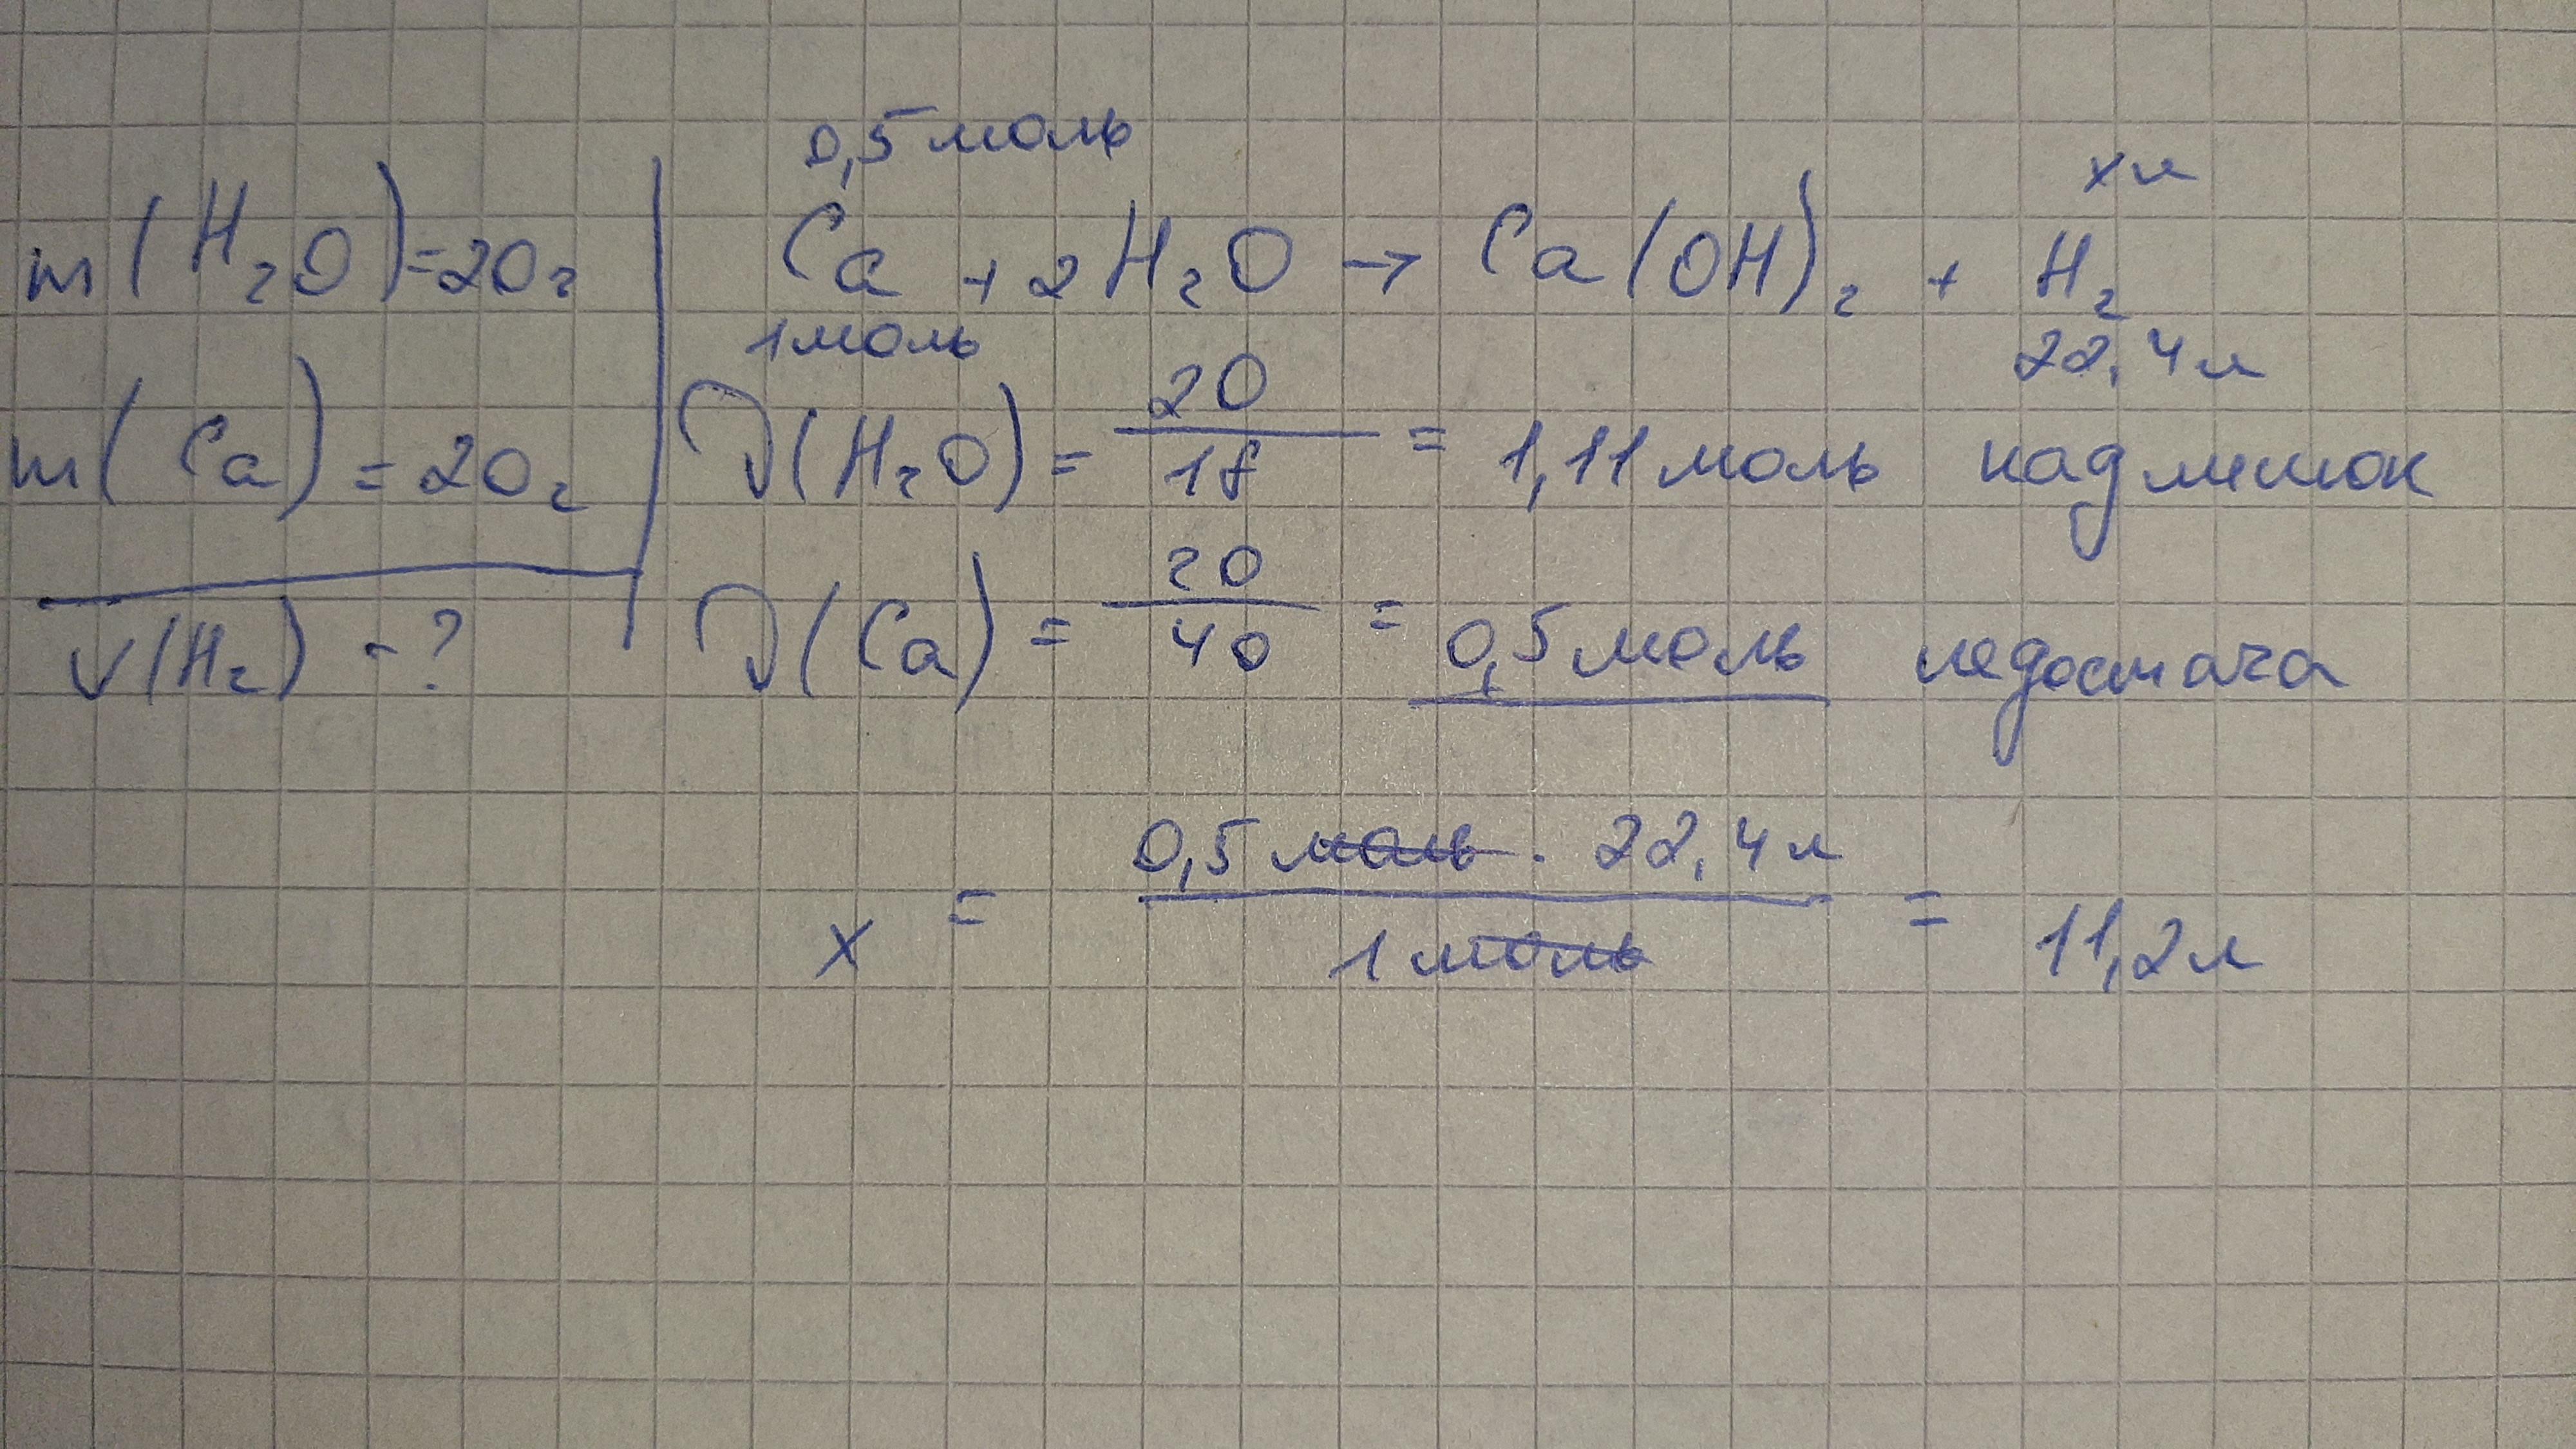 m(H₂O)=20г
m(Ca)=20г
V(H₂) -?
0,5 моль x л
Ca + 2H₂O → Ca(OH)₂ + H₂
1 моль 22,4 л
ν(H₂O) = 20/18 = 1,11 моль надлишок
ν(Ca) = 20/40 = 0,5 моль недостача
x = 0,5 моль · 22,4 л / 1 моль = 11,2 л